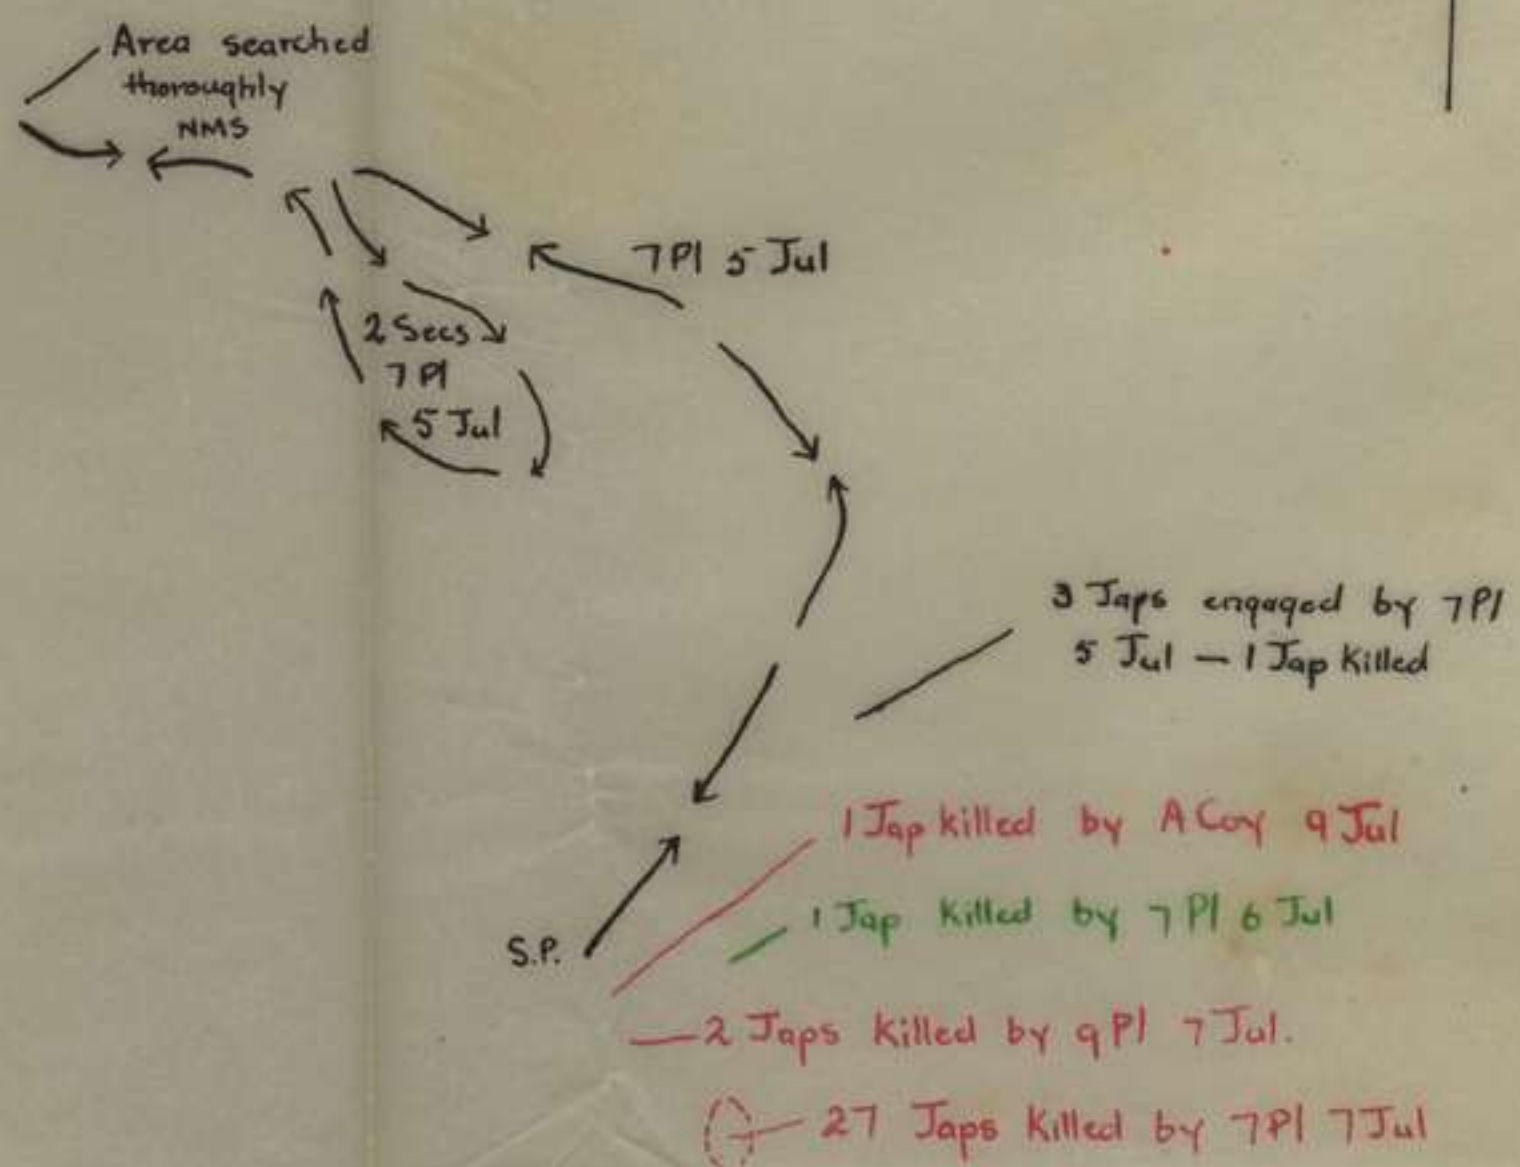 Area searched
thoroughly
NMS
7 Pl 5 Jul
2 Secs
7 Pl
5 Jul
3 Japs engaged by 7 Pl
5 Jul — 1 Jap Killed
1 Jap killed by A Coy 9 Jul
S.P.
1 Jap Killed by 7 Pl 6 Jul
2 Japs Killed by 9 Pl 7 Jul.
27 Japs Killed by 7 Pl 7 Jul